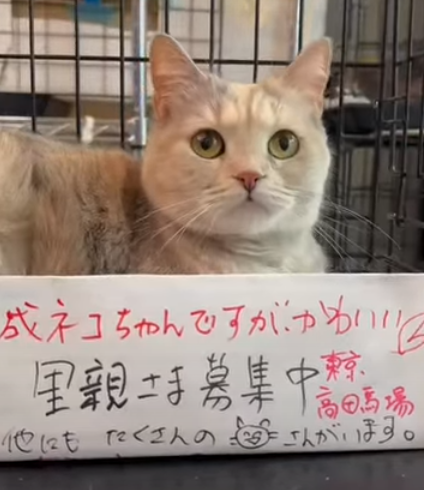 成ネコちゃんですが、かわいい
里親さま募集中
東京
高田馬場
他にも たくさんの さんがいます。